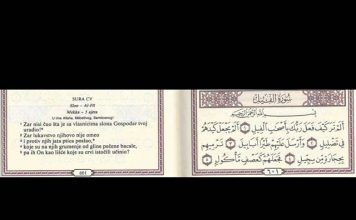 SURA CV
Slon – Al-Fil
Mekka – 5 ajeta
U ime Allaha, Milostivog, Samilosnog!
1 Zar nisi čuo šta je sa vlasnicima slona Gospodar tvoj
uradio?
2 Zar lukavstvo njihovo nije omeo
3 i protiv njih jata ptica poslao,
4 koje su na njih grumenje od gline pečene bacale,
5 pa ih On kao lišće koje su crvi istočili učinio?
601
سُورَةُ الْفِيلِ
بِسْمِ اللَّهِ الرَّحْمَٰنِ الرَّحِيمِ
أَلَمْ تَرَ كَيْفَ فَعَلَ رَبُّكَ بِأَصْحَٰبِ ٱلْفِيلِ ١ أَلَمْ يَجْعَلْ كَيْدَهُمْ
فِى تَضْلِيلٍ ٢ وَأَرْسَلَ عَلَيْهِمْ طَيْرًا أَبَابِيلَ ٣ تَرْمِيهِم
بِحِجَارَةٍ مِّن سِجِّيلٍ ٤ فَجَعَلَهُمْ كَعَصْفٍ مَّأْكُولٍ ٥
٦٠١